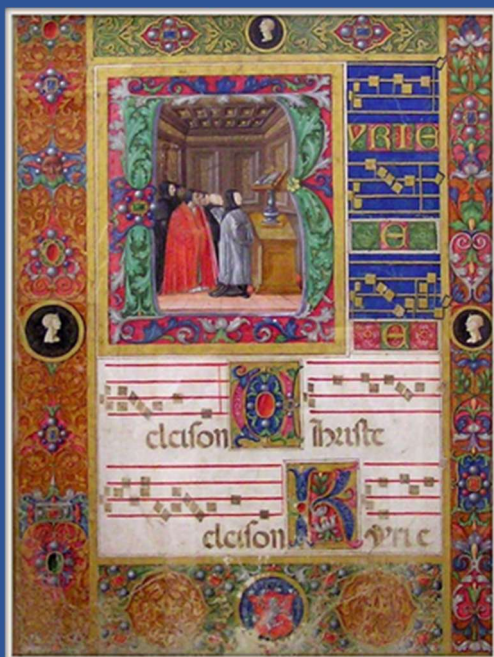 K
YRIE
E
E
eleison Christe
eleison Kyrie